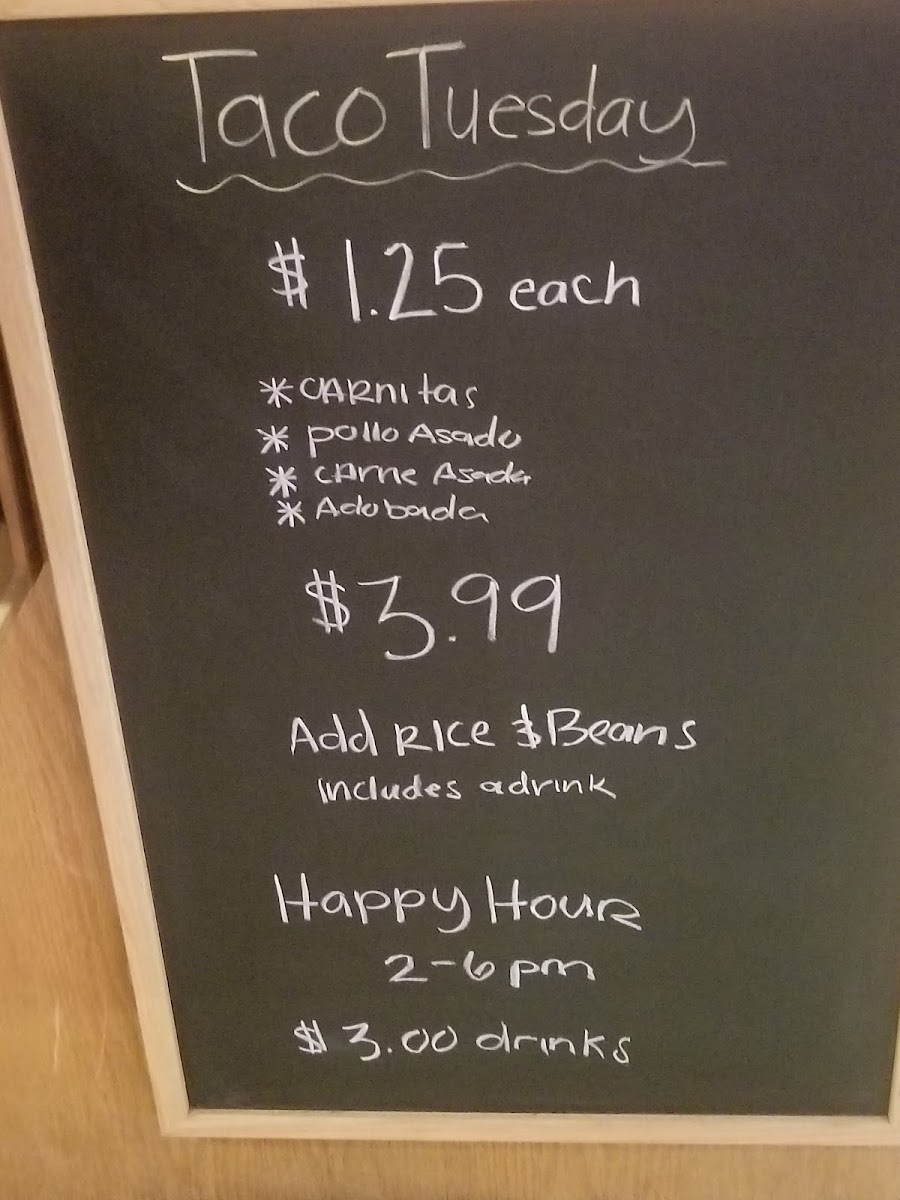 Taco Tuesday
$ 1.25 each
* CARnitas
* pollo Asado
* CArne Asada
* Adobada
$3.99
Add RICe & Beans
includes a drink
Happy HouR
2-6 pm
$ 3.00 drinks